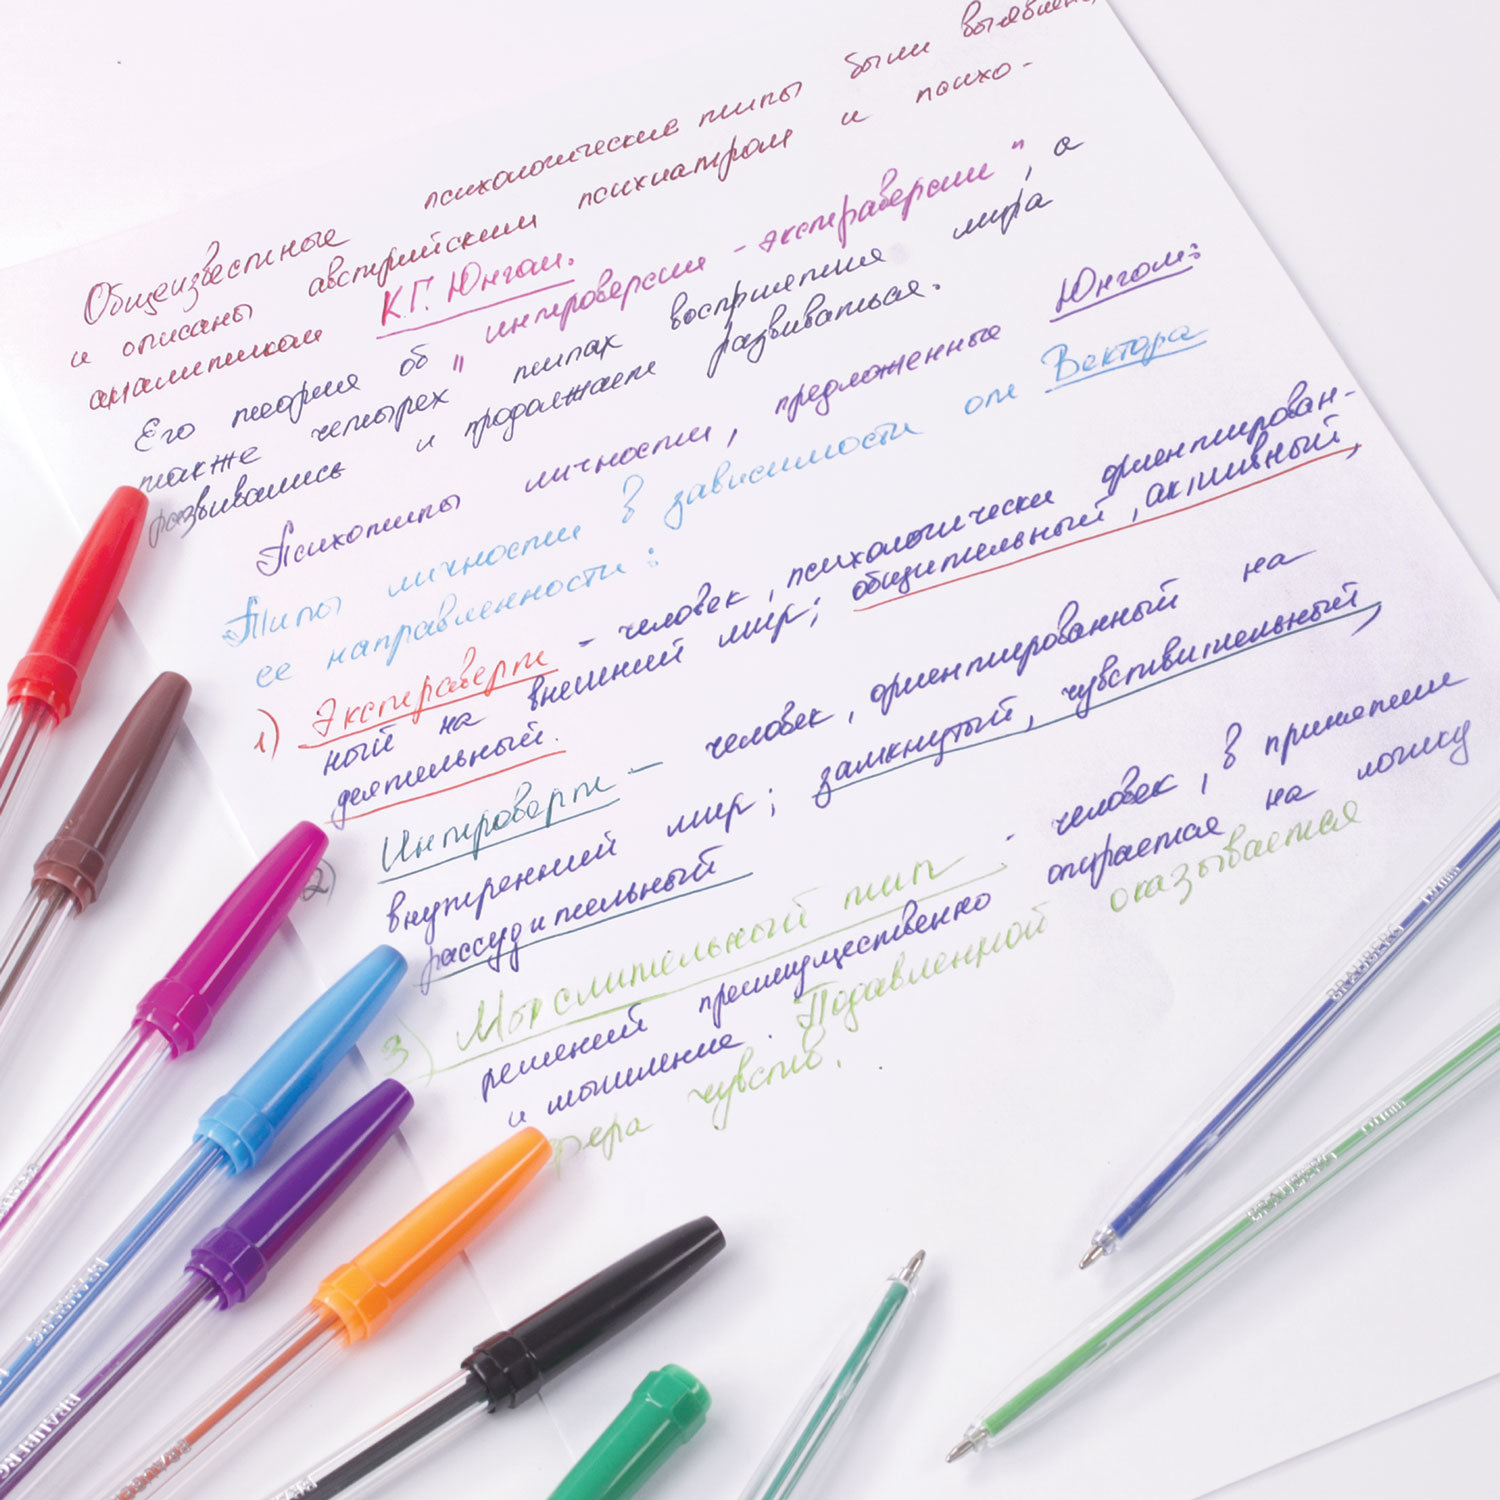 Общеизвестные психологические типы были выявлены
и описаны австрийским психиатром и психо-
аналитиком К.Г. Юнгом.
Его теория об "интроверсии - экстраверсии", а
также четырех типах восприятия мира
развивались и продолжает развиваться.
Психотипы личности, предложенные Юнгом:
Типы личности в зависимости от Вектора
ее направленности:
1) Экстраверт - человек, психологически ориентирован-
ный на внешний мир; общительный, активный,
деятельный.
2) Интроверт - человек, ориентированный на
внутренний мир; замкнутый, чувствительный,
рассудительный
3) Мыслительный тип - человек, в принятии
решений преимущественно опирается на логику
и мышление. Подавленной оказывается
сфера чувств.
BRAUBERG
BRAUBERG
BRAUBERG
BRAUBERG
BRAUBERG